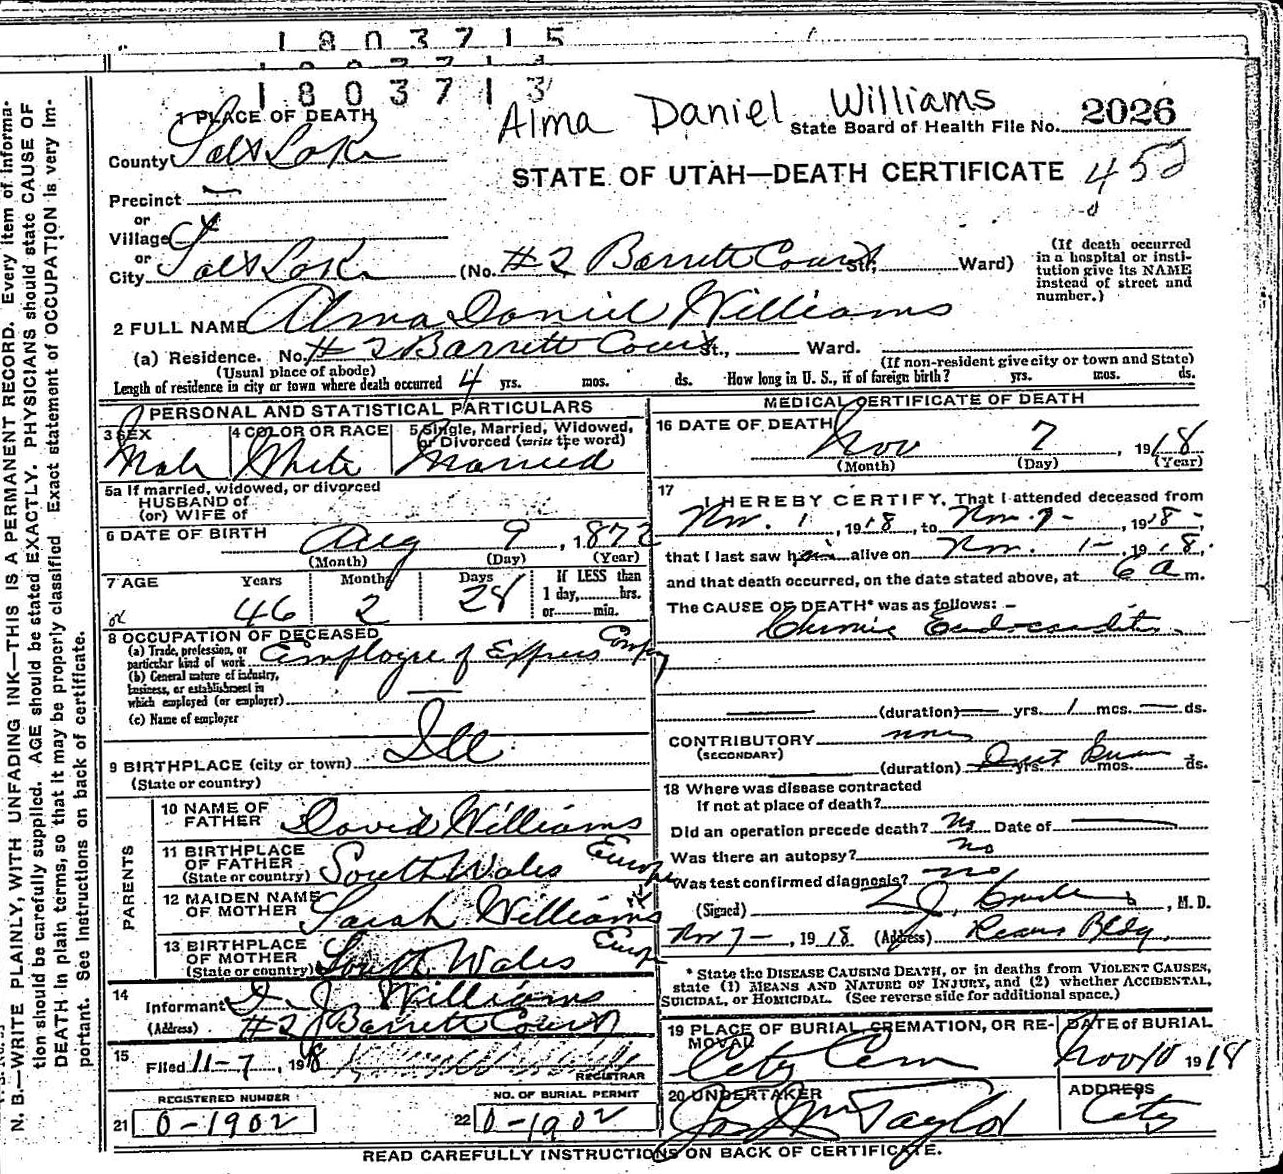 1803715
1803713
Alma Daniel Williams
State Board of Health File No. 2026
STATE OF UTAH—DEATH CERTIFICATE 452
1 PLACE OF DEATH
County Salt Lake
Precinct —
or
Village
or
City Salt Lake (No. #2 Barrett Court Str, Ward)
(If death occurred in a hospital or institution give its NAME instead of street and number.)
2 FULL NAME Alma Daniel Williams
(a) Residence. No. #2 Barrett Court St., Ward.
(Usual place of abode) (If non-resident give city or town and State)
Length of residence in city or town where death occurred 4 yrs. mos. ds. How long in U. S., if of foreign birth? yrs. mos. ds.
PERSONAL AND STATISTICAL PARTICULARS
3 SEX 4 COLOR OR RACE 5 Single, Married, Widowed, or Divorced (write the word)
Male White Married
5a If married, widowed, or divorced
HUSBAND of
(or) WIFE of
6 DATE OF BIRTH Aug 9, 1872
(Month) (Day) (Year)
7 AGE Years Months Days If LESS than
46 2 28 1 day, hrs.
or min.
8 OCCUPATION OF DECEASED
(a) Trade, profession, or particular kind of work Employee of Express Company
(b) General nature of industry, business, or establishment in which employed (or employer)
(c) Name of employer
9 BIRTHPLACE (city or town) Ill
(State or country)
PARENTS
10 NAME OF FATHER David Williams
11 BIRTHPLACE OF FATHER South Wales Europe
(State or country)
12 MAIDEN NAME OF MOTHER Sarah Williams
13 BIRTHPLACE OF MOTHER South Wales Europ
(State or country)
14 Informant D. J. Williams
(Address) #2 Barrett Court
15 Filed 11-7, 1918
REGISTRAR
REGISTERED NUMBER NO. OF BURIAL PERMIT
21 0-1902 22 0-1902
MEDICAL CERTIFICATE OF DEATH
16 DATE OF DEATH Nov 7, 1918
(Month) (Day) (Year)
17 I HEREBY CERTIFY, That I attended deceased from
Nov. 1, 1918, to Nov. 7-, 1918-,
that I last saw him alive on Nov. 1-, 1918,
and that death occurred, on the date stated above, at 6 a m.
The CAUSE OF DEATH* was as follows:
Chronic Endocarditis
(duration) — yrs. 1 mos. — ds.
CONTRIBUTORY none
(SECONDARY)
(duration) yrs. mos. ds.
18 Where was disease contracted
if not at place of death?
Did an operation precede death? No Date of —
Was there an autopsy? no
Was test confirmed diagnosis? no
(Signed) , M. D.
Nov 7-, 1918 (Address) Kearns Bldg.
* State the DISEASE CAUSING DEATH, or in deaths from VIOLENT CAUSES,
state (1) MEANS AND NATURE OF INJURY, and (2) whether ACCIDENTAL,
SUICIDAL, or HOMICIDAL. (See reverse side for additional space.)
19 PLACE OF BURIAL, CREMATION, OR REMOVAL DATE of BURIAL
City Cem Nov 10 1918
20 UNDERTAKER ADDRESS
Taylor City
READ CAREFULLY INSTRUCTIONS ON BACK OF CERTIFICATE.
N. B.—WRITE PLAINLY, WITH UNFADING INK—THIS IS A PERMANENT RECORD. Every item of informa-
tion should be carefully supplied. AGE should be stated EXACTLY. PHYSICIANS should state CAUSE OF
DEATH in plain terms, so that it may be properly classified. Exact statement of OCCUPATION is very im-
portant. See instructions on back of certificate.